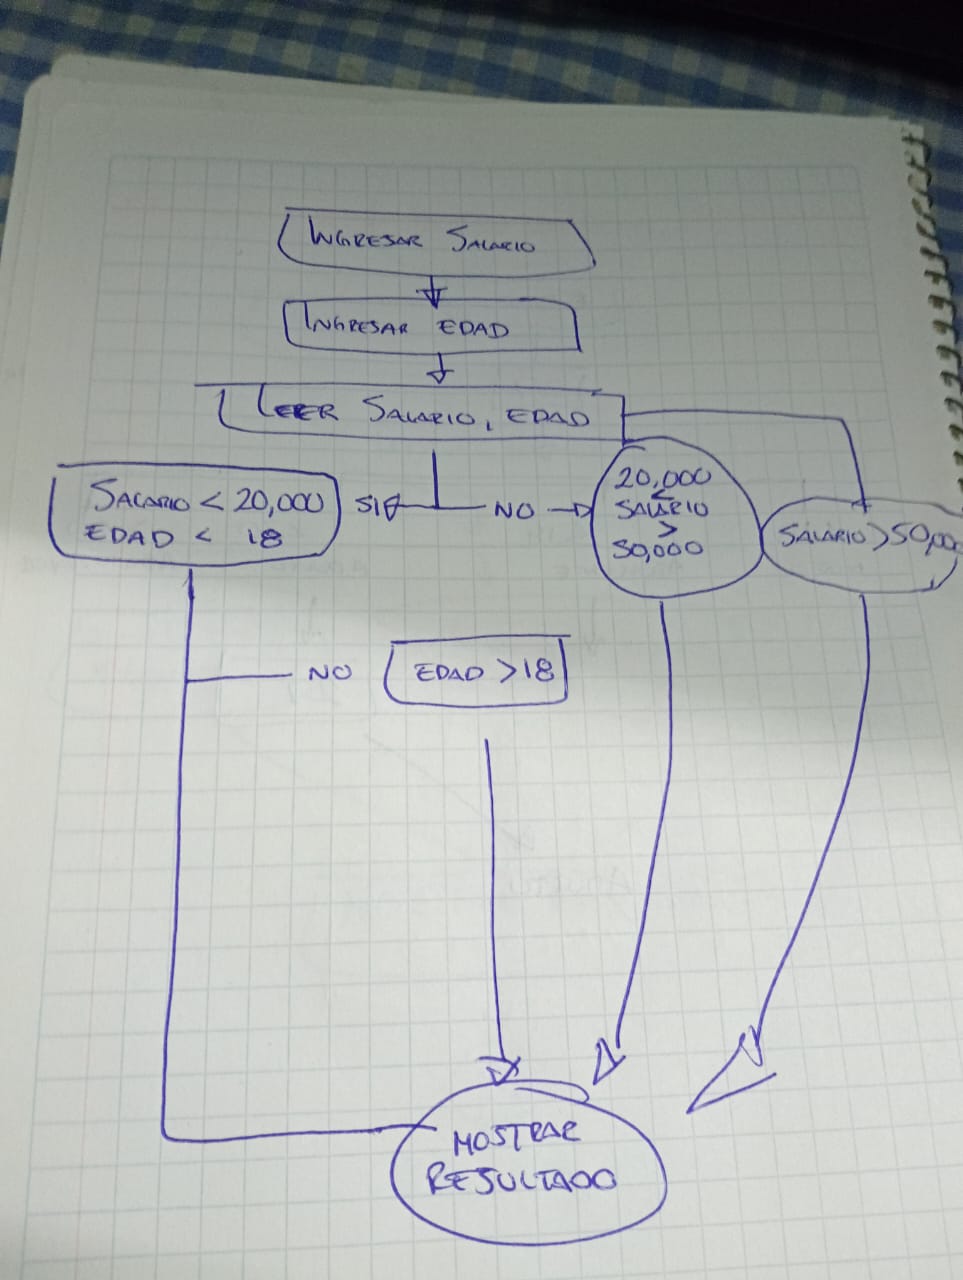 INGRESAR SALARIO
INGRESAR EDAD
LEER SALARIO, EDAD
SALARIO < 20,000
EDAD < 18
SI
NO
20,000
<
SALARIO
>
50,000
SALARIO > 50,00
NO
EDAD > 18
MOSTRAR
RESULTADO